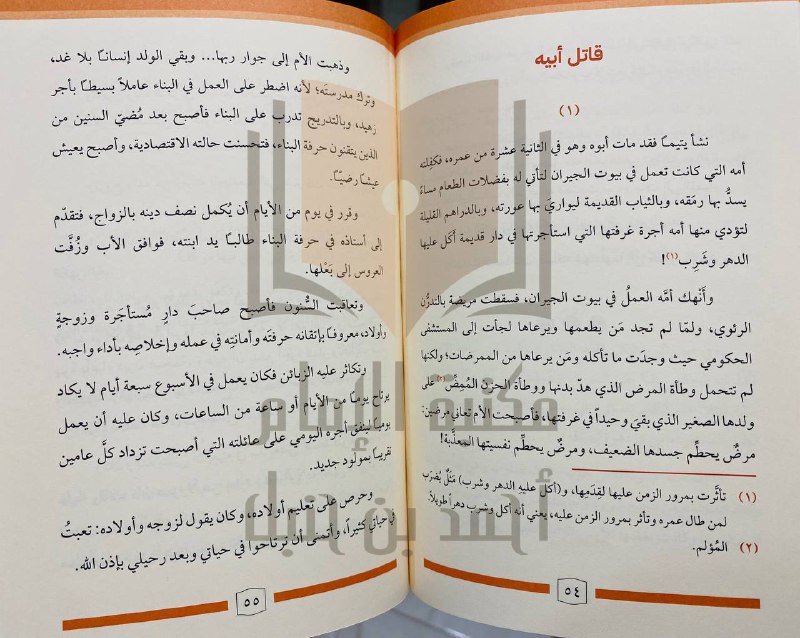 قاتل أبيه
(١)
نشأ يتيمًا فقد مات أبوه وهو في الثانية عشرة من عمره، فكفِلته
أمه التي كانت تعمل في بيوت الجيران لتأتي له بفضلات الطعام مساءً
يسدُّ بها رمَقه، وبالثياب القديمة ليواريَ بها عورته، وبالدراهم القليلة
لتؤدي منها أمه أجرة غرفتها التي استأجرتها في دار قديمة أكَل عليها
الدهر وشَرِب(١)!
وأَنهك أمَّه العملُ في بيوت الجيران، فسقطت مريضة بالتدرُّن
الرئوي، ولمّا لم تجد مَن يطعمها ويرعاها لجأت إلى المستشفى
الحكومي حيث وجدَت ما تأكله ومَن يرعاها من الممرضات؛ ولكنها
لم تتحمل وطأة المرض الذي هدّ بدنها ووطأة الحزن المُمِضّ(٢) على
ولدها الصغير الذي بقيَ وحيداً في غرفتها، فأصبحت الأم تعاني مرضين:
مرضٌ يحطِّم جسدها الضعيف، ومرضٌ يحطِّم نفسيتها المعذَّبة!
(١) تأثَّرت بمرور الزمن عليها لقِدَمِها، و(أكل عليهِ الدهر وشرب) مَثَلٌ يُضرَب
لمن طال عمره وتأثر بمرور الزمن عليه، يعني أنه أكل وشرب دهراً طويلاً.
(٢) المُؤلم.
٥٤
وذهبت الأم إلى جوار ربها... وبقي الولد إنسانًا بلا غد،
وترك مدرستَه؛ لأنه اضطر على العمل في البناء عاملاً بسيطًا بأجر
زهيد، وبالتدريج تدرب على البناء فأصبح بعد مُضيّ السنين من
الذين يتقنون حرفة البناء، فتحسنت حالته الاقتصادية، وأصبح يعيش
عيشًا رضيًّا.
وقرر في يوم من الأيام أن يُكمل نصف دينه بالزواج، فتقدّم
إلى أستاذه في حرفة البناء طالبًا يد ابنته، فوافق الأب وزُفَّت
العروس إلى بَعْلها.
وتعاقبت السُّنون فأصبح صاحبَ دارٍ مُستأجَرة وزوجةٍ
وأولاد، معروفًا بإتقانه حرفتَه وأمانتِه في عمله وإخلاصِه بأداء واجبه.
وتكاثر عليه الزبائن فكان يعمل في الأسبوع سبعة أيام لا يكاد
يرتاح يومًا من الأيام أو ساعة من الساعات، وكان عليه أن يعمل
يوميًا لينفق أجره اليومي على عائلته التي أصبحت تزداد كلَّ عامين
تقريبًا بمولود جديد.
وحرص على تعليم أولاده، وكان يقول لزوجه وأولاده: تعبتُ
في حياتي كثيراً، وأتمنى أن ترتاحوا في حياتي وبعد رحيلي بإذن الله.
٥٥
مكتبة الإمام
أحمد بن حنبل